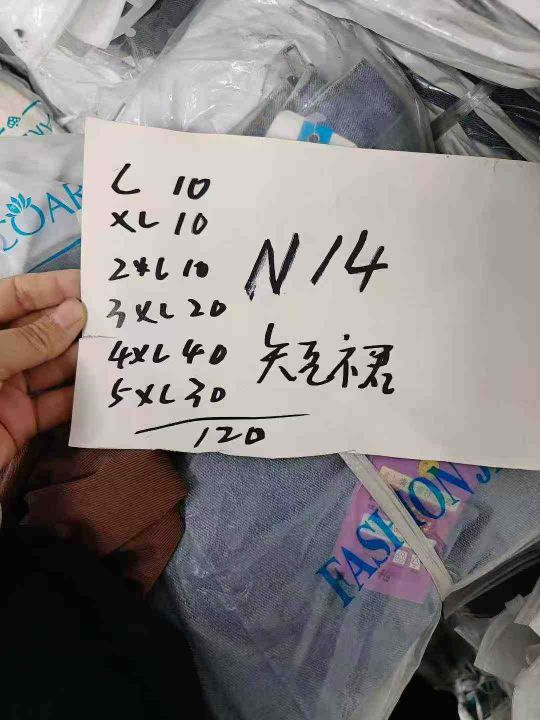 L 10
XL 10
2XL 10
3XL 20
4XL 40
5XL 30
120
N14
短裙
FASHION J